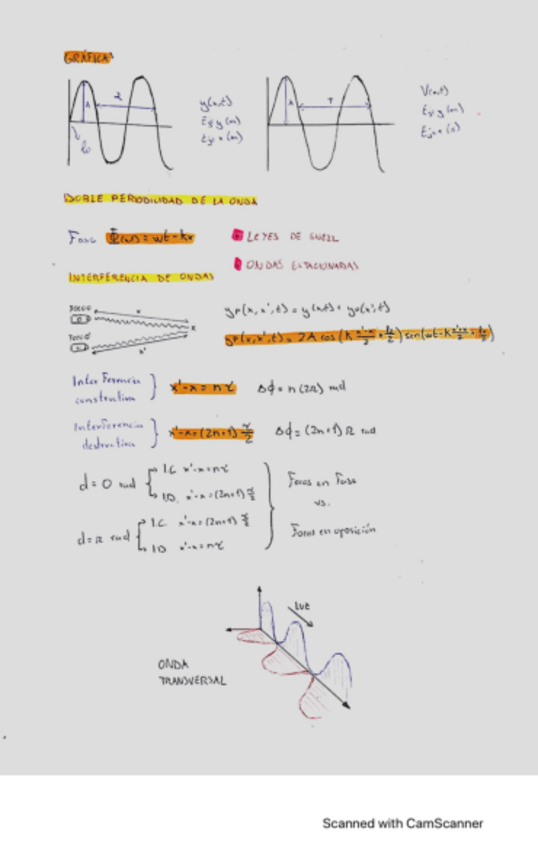 GRÁFICA
A
λ
y(x,t)
Ey: y (m)
Ex: x (m)
A
T
V(x,t)
Ey: y (m)
DOBLE PERIODICIDAD DE LA ONDA
Fase Φ(x,t) = wt - kx
LEYES DE SNELL
ONDAS ESTACIONARIAS
INTERFERENCIA DE ONDAS
FOCO
x
x'
yp(x, x', t) = y(x,t) + y(x',t)
yp(x, x', t) = 2A cos (K
Interferencia constructiva
x'-x = nλ Δφ = n(2π) rad
Interferencia destructiva
x'-x = (2n+1) λ/2 Δφ = (2n+1) π rad
d = 0 rad
I.C. x'-x = nλ
I.D. x'-x = (2n+1) λ/2
d = π rad
I.C. x'-x = (2n+1) λ/2
I.D. x'-x = nλ
Focos en Fase
vs.
Focos en oposición
LUZ
ONDA
TRANSVERSAL
Scanned with CamScanner